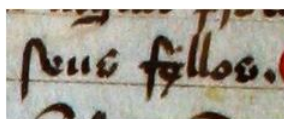 seus fyllos.